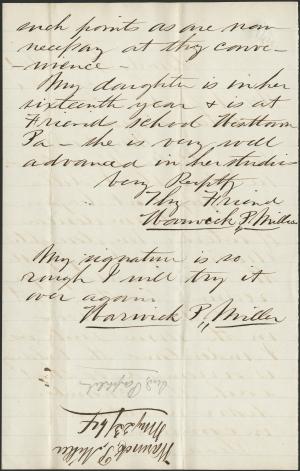 such points as are now
necessary at thy conve-
-nience -
My daughter is in her
sixteenth year & is at
Friends school Westtown
Pa - she is very well
advanced in her studies
Very Respty
Thy Friend
Warwick P. Miller
My signature is so
rough I will try it
over again
Warwick P. Miller
Warwick P. Miller